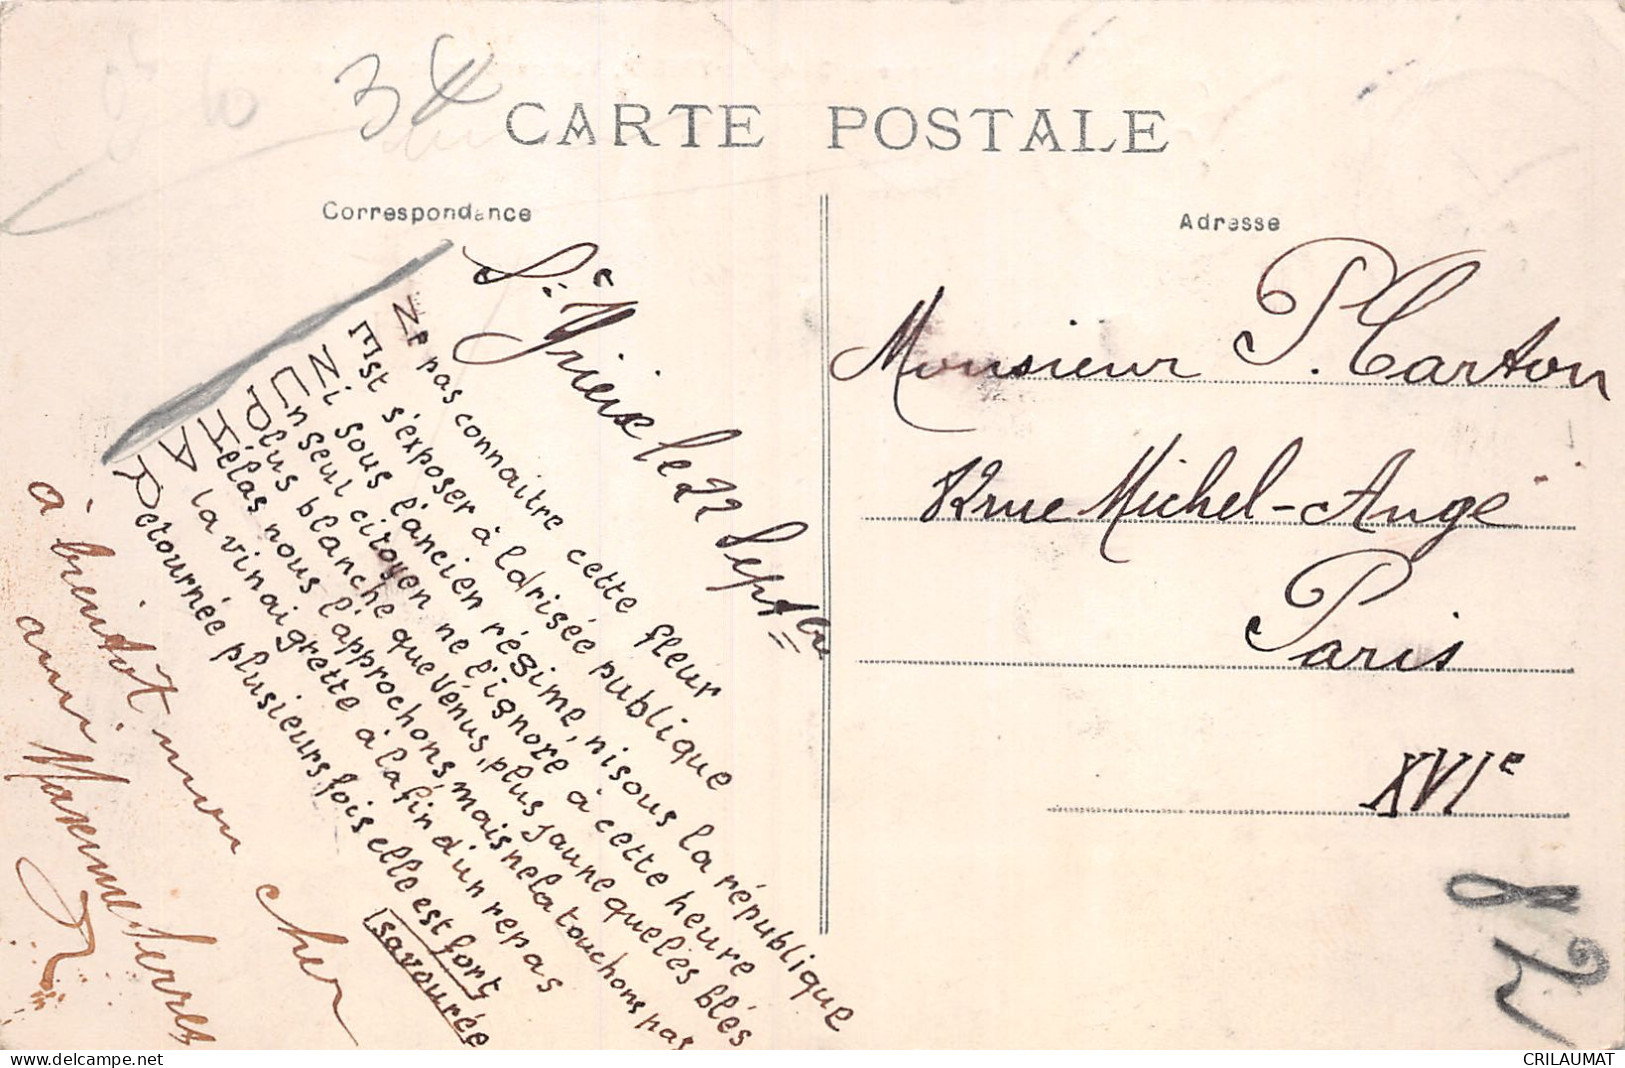 34
CARTE POSTALE
Correspondance
Adresse
St Yrieix le 22 Septbre
Ne pas connaitre cette fleur
Est s'exposer à la risée publique
Ni sous l'ancien régime, ni sous la république
Un seul citoyen ne l'ignore à cette heure
Plus blanche que Vénus, plus jaune que les blés
Hélas nous l'approchons, mais ne la touchons pas
A la vinaigrette à la fin d'un repas
Retournée plusieurs fois elle est fort
savourée
à bientôt mon cher
ami
Maxime Serres
Monsieur P. Carton
12 rue Michel-Ange
Paris
XVIe
82
www.delcampe.net
CRILAUMAT